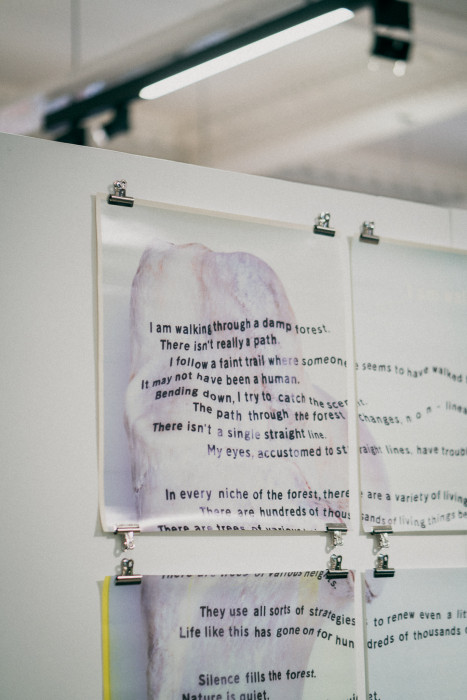 I am walking through a damp forest.
There isn't really a path.
I follow a faint trail where someone seems to have walked
It may not have been a human.
Bending down, I try to catch the scent.
The path through the forest changes, non-linear
There isn't a single straight line.
My eyes, accustomed to straight lines, have
In every niche of the forest, there are a variety of living
There are hundreds of thousands of living things
There are trees of various
There are trees of various heights.
They use all sorts of strategies to renew even a
Life like this has gone on for hundreds of thousands
Silence fills the forest.
Nature is quiet.